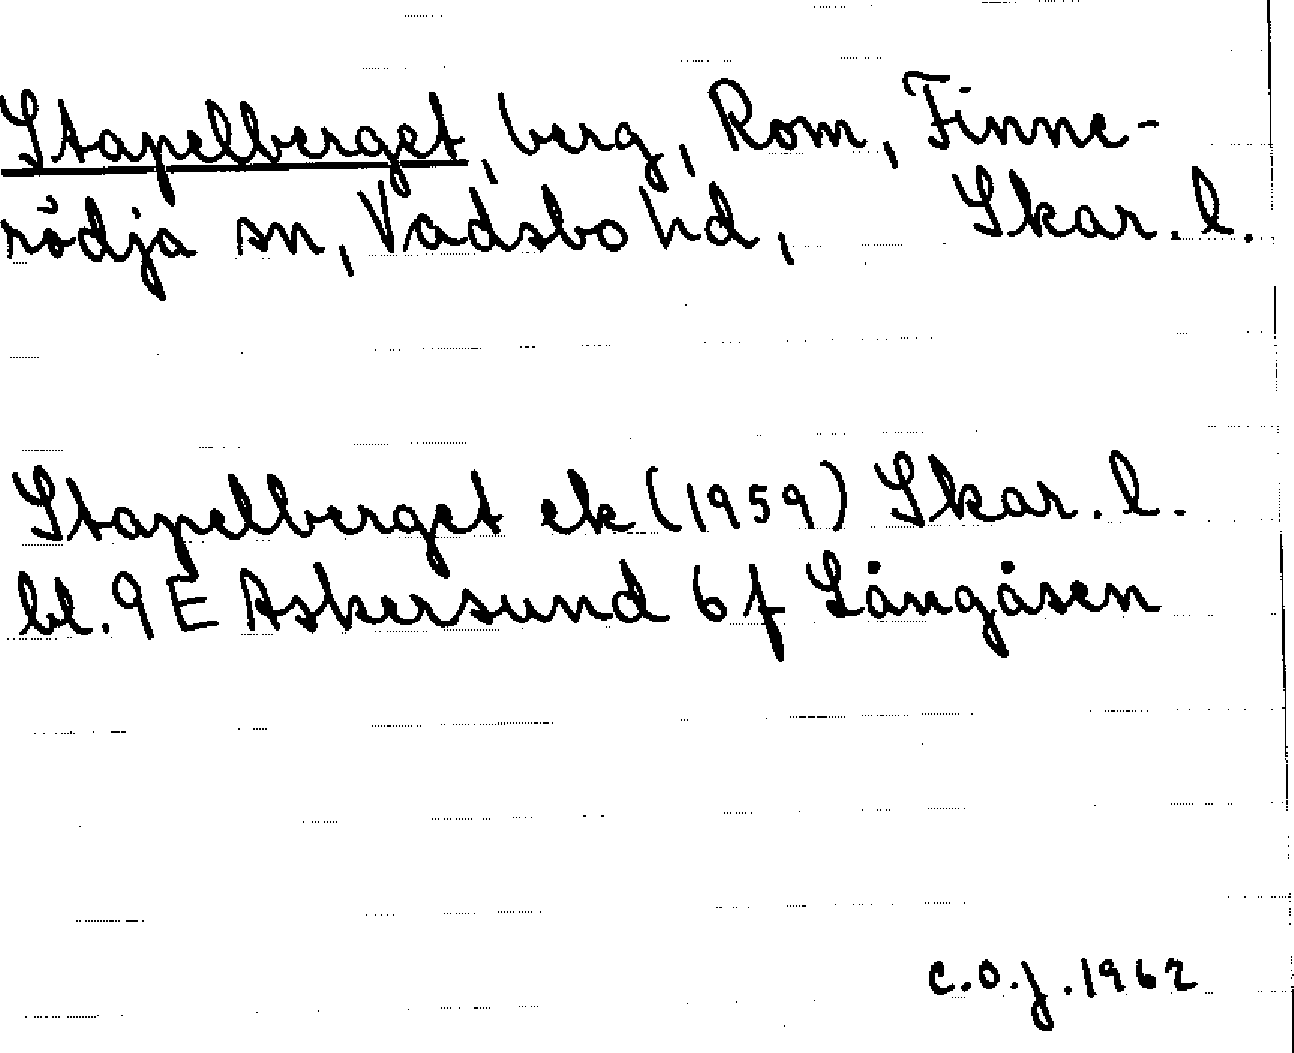 Stapelberget, berg, Rom, Finne-
rödja sn, Vadsbo hd, Skar. l.
Stapelberget ek (1959) Skar. l.
bl. 9 E Askersund 6 f Långåsen
C.O.J. 1962